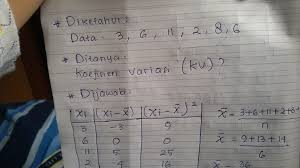 * Diketahui :
Data : 3, 6, 11, 2, 8, 6
* Ditanya :
Koefisien Varian (KV)?
* Dijawab :
xi | xi-x̄ | (xi-x̄)²
3 | -3 | 9
6 | 0 | 0
11 | 5 | 25
2 | 4 | 16
x̄ = 3+6+11+2+8+
n
= 9+13+14
6